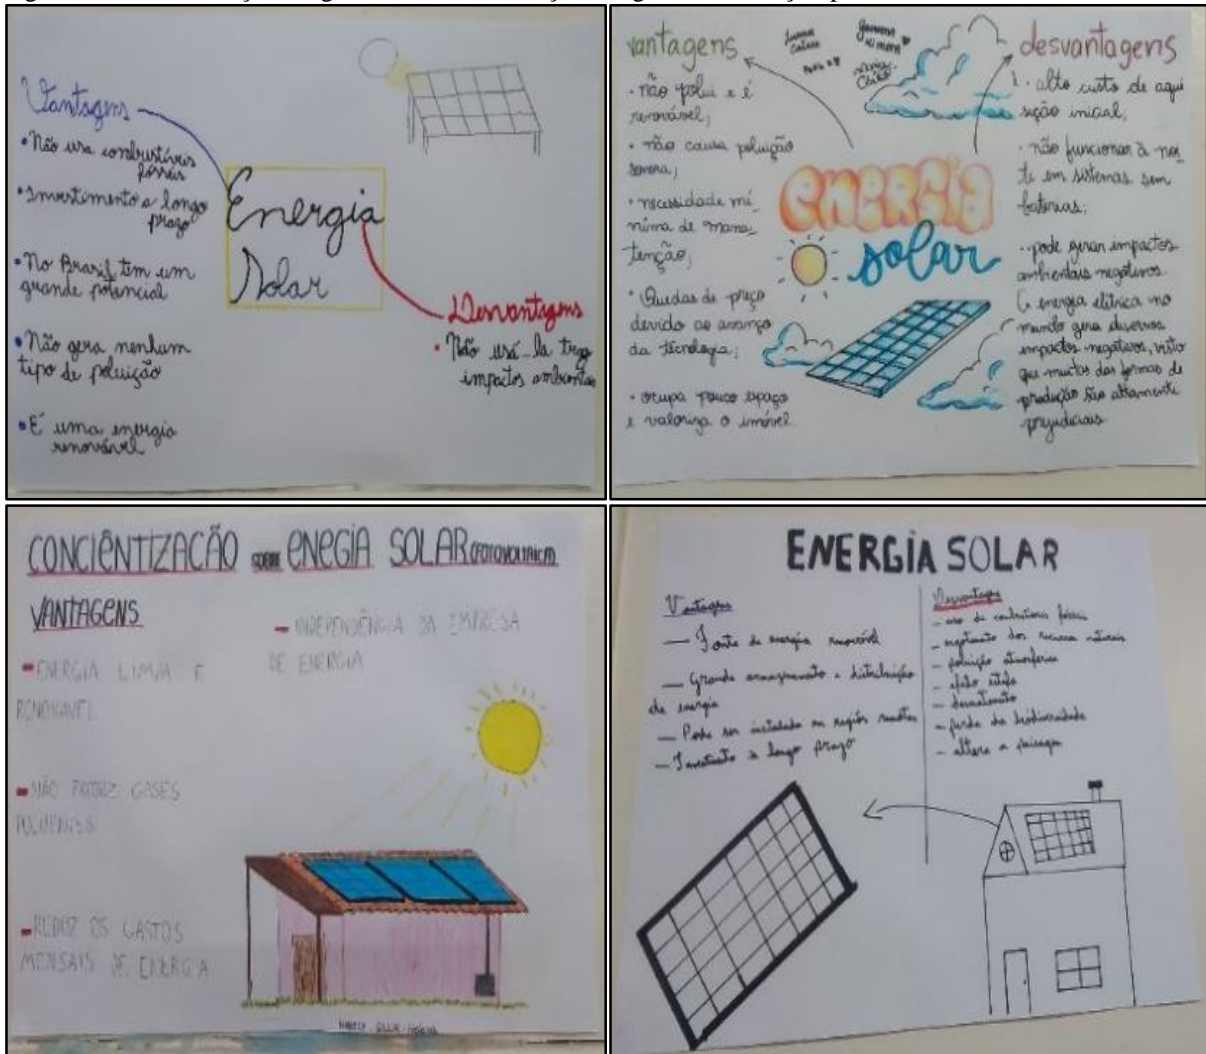 Vantagens
• Não usa combustíveis
fósseis
• Investimento a longo
prazo
• No Brasil tem um
grande potencial
• Não gera nenhum
tipo de poluição
• É uma energia
renovável
Energia
Solar
Desvantagens
• Não usá-la traz
impactos
vantagens
• não polui e é
renovável;
• não causa poluição
sonora;
• necessidade mí-
nima de manu-
tenção;
• Quedas de preço
devido ao avanço
da tecnologia;
• ocupa pouco espaço
e valoriza o imóvel
energia
solar
desvantagens
alto custo de aqui
sição inicial;
• não funcionar à noi
te em sistemas sem
baterias;
pode gerar impactos
ambientais negativos
energia elétrica no
mundo gera diversos
impactos negativos, visto
que muitas das formas de
produção são altamente
prejudiciais
CONCIÊNTIZAÇÃO SOBRE ENEGIA SOLAR (FOTOVOLTAICA)
VANTAGENS
- ENERGIA LIMPA E
RENOVÁVEL
- NÃO PRODUZ GASES
POLUENTES
- REDUZ OS GASTOS
MENSAIS DE ENERGIA
- INDEPENDÊNCIA DA EMPRESA
DE ENERGIA
ENERGIA SOLAR
Vantagens
— Fonte de energia renovável
— Grande armazenamento e distribuição
de energia
— Pode ser instalado em regiões remotas
— Investimento a longo prazo
Desvantagens
- uso de combustíveis fósseis
- esgotamento dos recursos naturais
- poluição atmosférica
- efeito estufa
- desmatamento
- perda da biodiversidade
- altera a paisagem